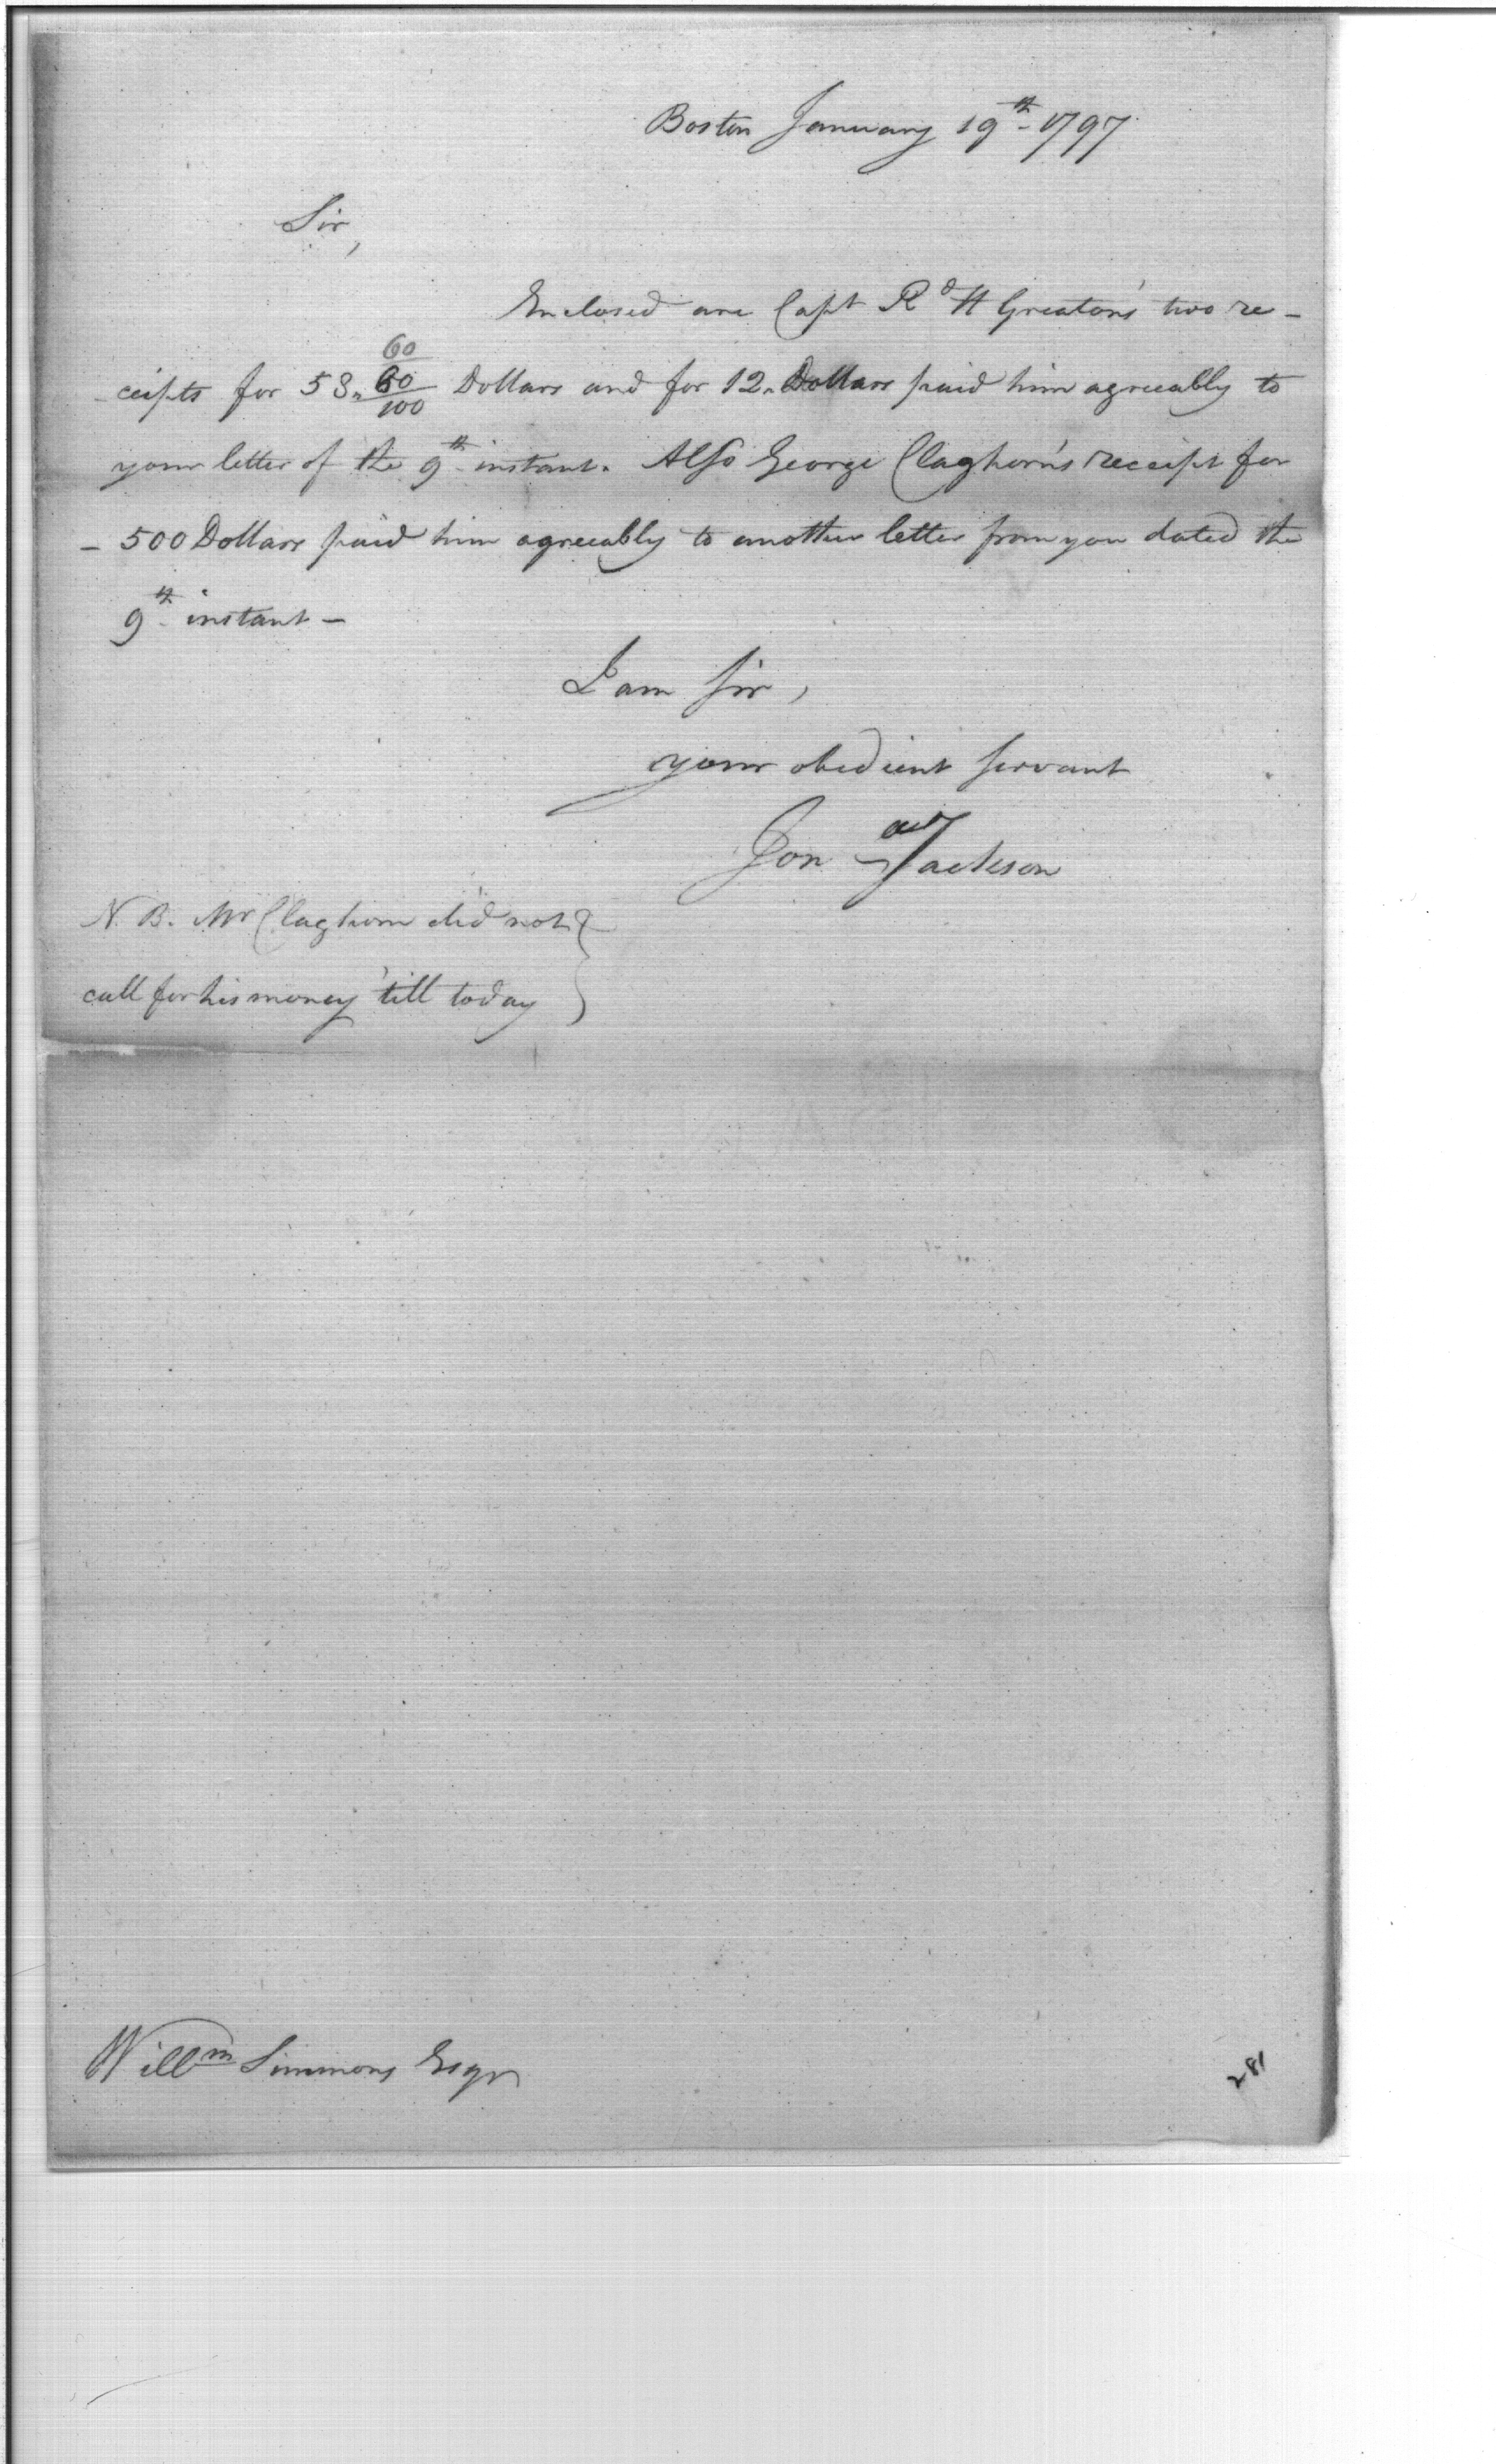 Boston January 19th 1797
Sir,
Enclosed are Capt Rd H Greaton's two re-
-ceipts for 58. 60/100 Dollars and for 12. Dollars paid him agreeably to
60
your letter of the 9th instant. Also George Claghorn's receipt for
- 500 Dollars paid him agreeably to another letter from you dated the
9th instant -
I am Sir,
your obedient servant
Jonan Jackson
N. B. Mr Claghorn did not
call for his money 'till today
Willm Simmons Esqr
281